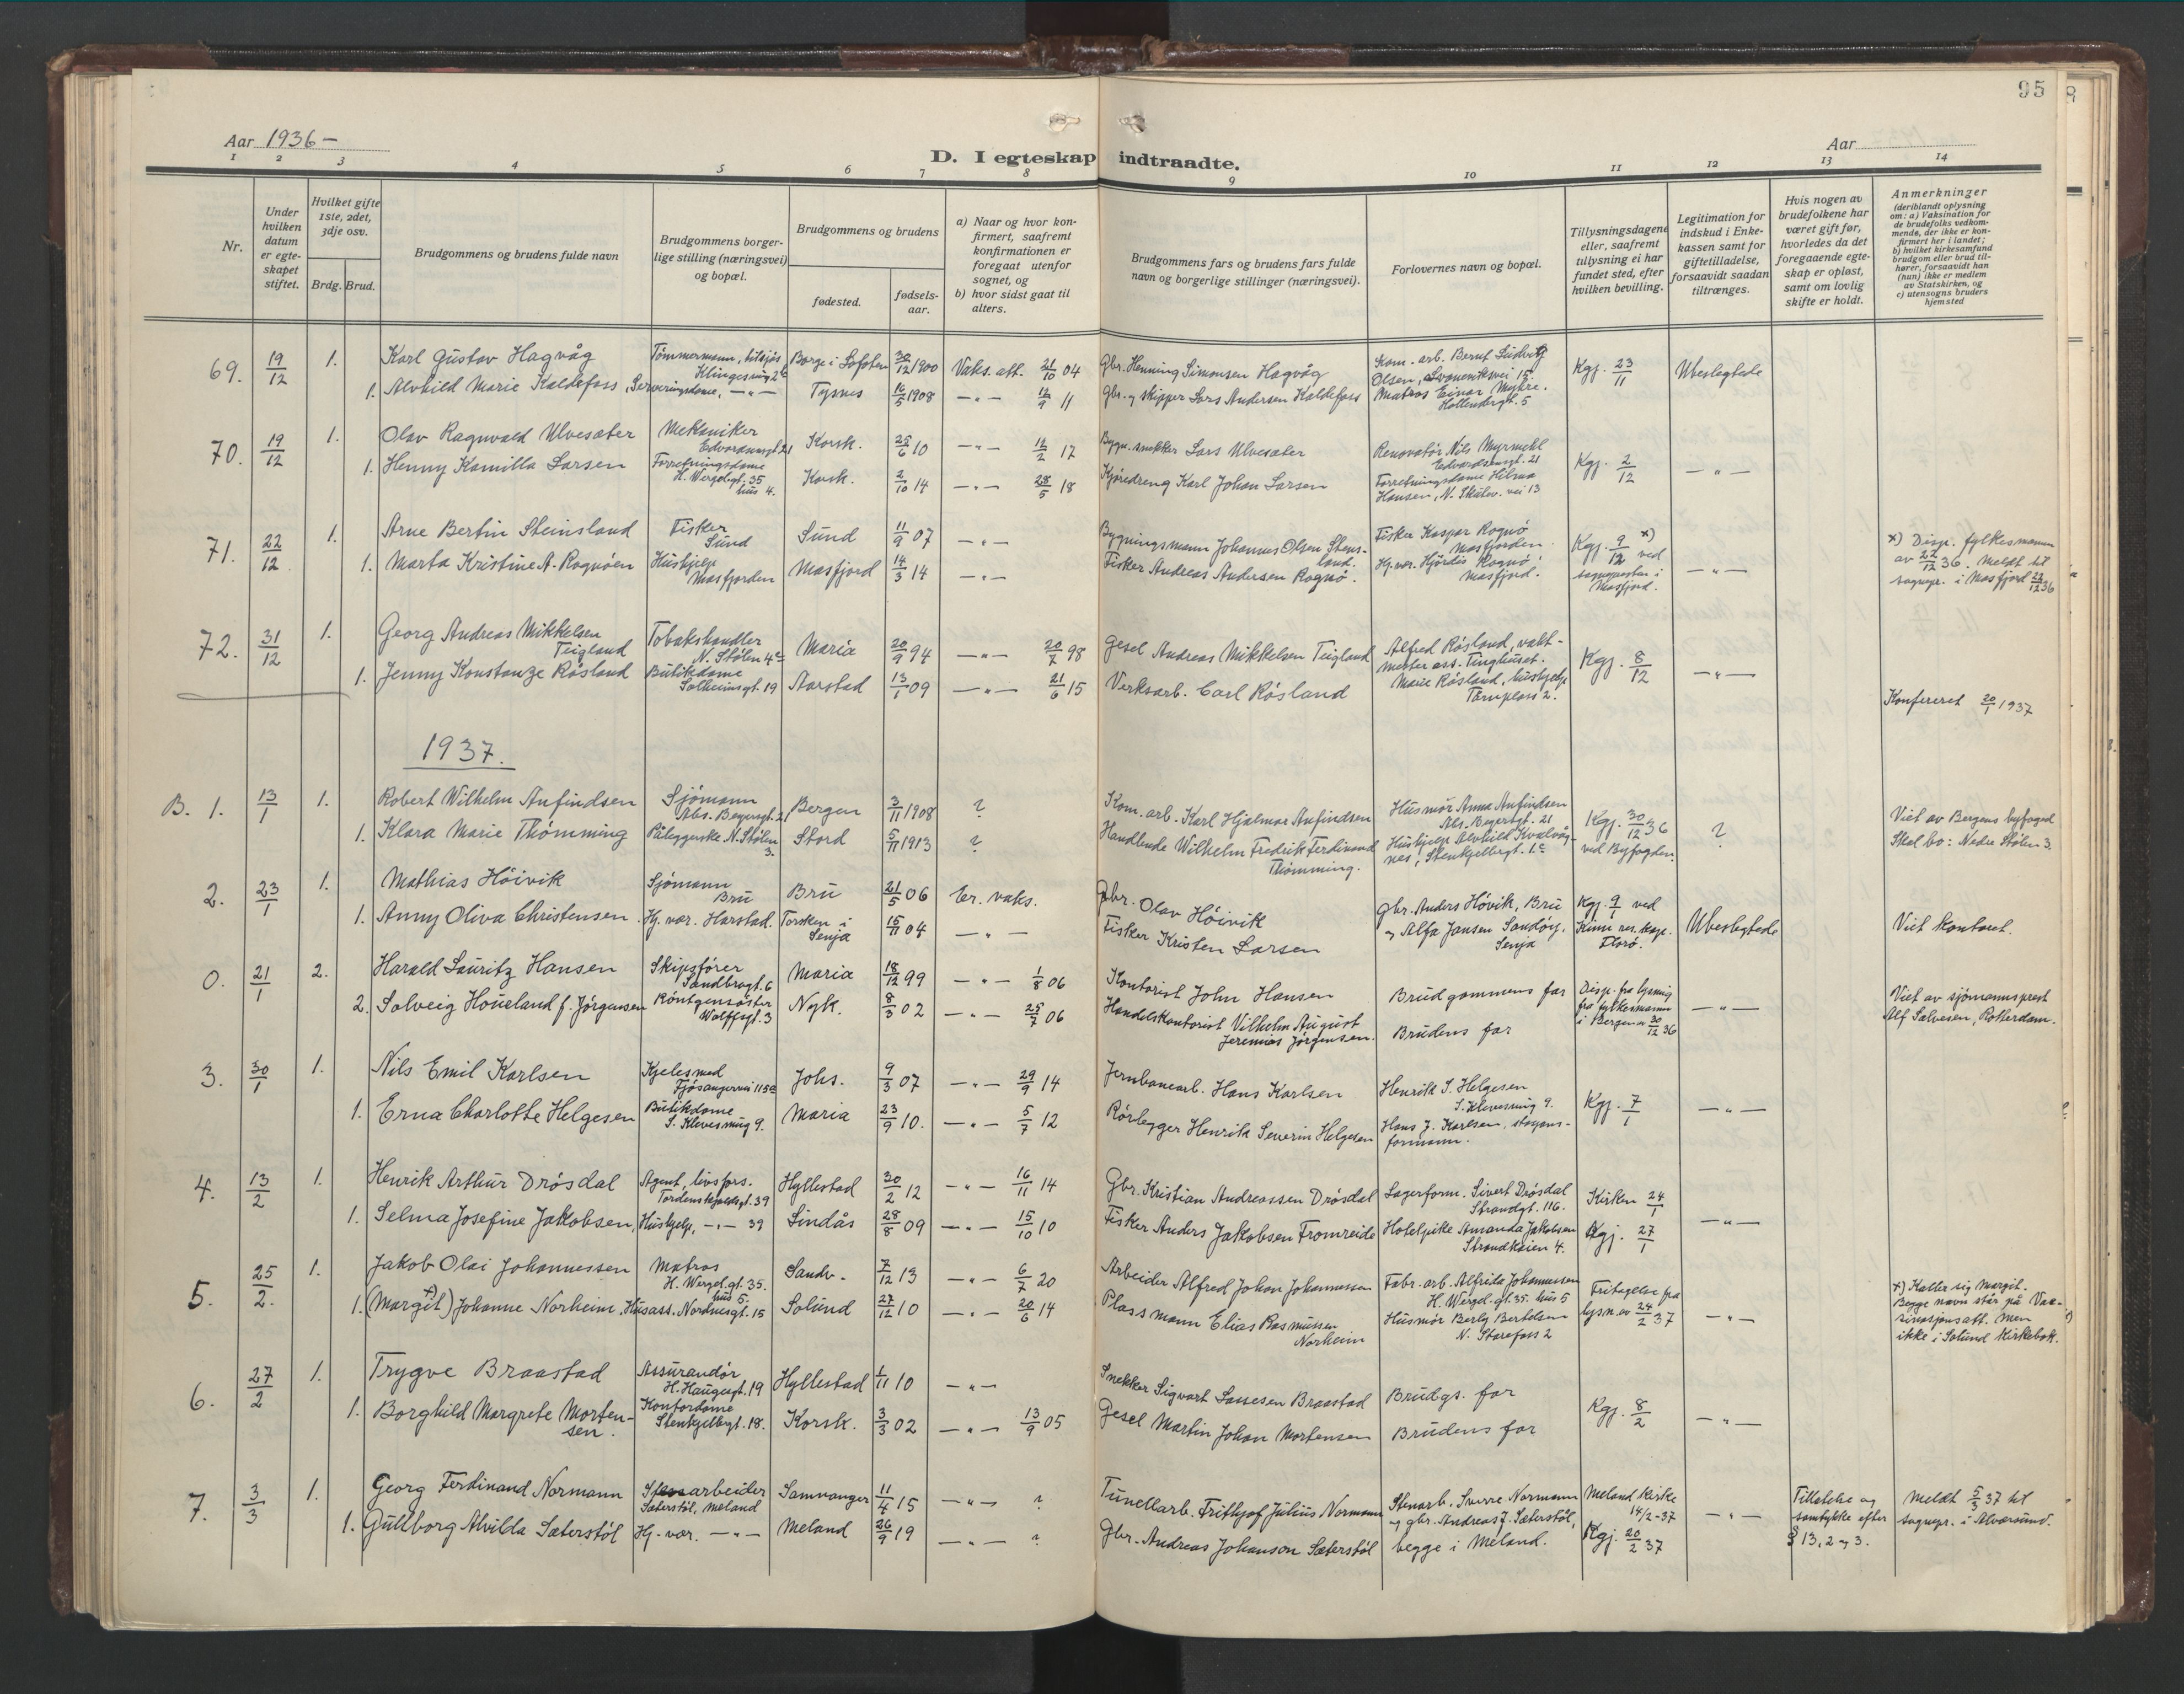 95
Aar 1936 —
Aar
D. I egteskap indtraadte.
1 2 3 4 5 6 7 8 9 10 11 12 13 14
Nr.
Under hvilken datum er egteskapet stiftet.
Hvilket gifte 1ste, 2det, 3dje osv.
Brdg. Brud.
Brudgommens og brudens fulde navn
Brudgommens borgerlige stilling (næringsvei) og bopæl.
Brudgommens og brudens
fødested.
fødselsaar.
a) Naar og hvor konfirmert, saafremt konfirmationen er foregaat utenfor sognet, og
b) hvor sidst gaat til alters.
Brudgommens fars og brudens fars fulde navn og borgerlige stillinger (næringsvei).
Forlovernes navn og bopæl.
Tillysningsdagene eller, saafremt tillysning ei har fundet sted, efter hvilken bevilling.
Legitimation for indskud i Enkekassen samt for giftetilladelse, forsaavidt saadan tiltrænges.
Hvis nogen av brudefolkene har været gift før, hvorledes da det foregaaende egteskap er opløst, samt om lovlig skifte er holdt.
Anmerkninger
(deriblandt oplysning om: a) Vaksination for de brudefolks vedkommende, der ikke er konfirmert her i landet; b) hvilket kirkesamfund brudgom eller brud tilhører, forsaavidt han (hun) ikke er medlem av Statskirken, og c) utensogns bruders hjemsted
69. 19/12 1. Karl Gustav Hagvåg Tømmermann, Klingesmug 2 Borge i Lofoten 30/12 1900 Vaks. att. 21/10 04 Gbr. Henning Simonsen Hagvåg Kom. arb. Bernt Ludvig Olsen, 15. Kgj. 23/11 Ubeslegtede
1. Alvhild Marie Kaldefoss, Serveringsdame, —"— Tysnes 16/5 1908 —"— 12/9 11 Gbr. og skipper Lars Andersen Kaldefoss Matros Einar Myhre. Hollendergt. 5
70. 19/12 1. Olav Ragnvald Ulvesæter Mekaniker Edvardsensgt. 21 Korsk. 25/6 10 —"— 12/2 17 Bygn. snekker Lars Ulvesæter Renovatør Nils Myrmehl Edvardsensgt. 21 Kgj. 2/12 —"—
1. Henny Kamilla Larsen Forretningsdame H. Wergelsgt. 35 hus 4. Korsk. 2/10 14 —"— 28/5 18 Kjøredreng Karl Johan Larsen Forretningsdame Hilma Hansen, N. Skutev. vei 13
71. 22/12 1. Arne Bertin Steinsland Fisker Sund Sund 11/9 07 —"— Bygningsmann Johannes Olsen Stensland. Fisker Kaspar Rognø Masfjorden Kgj. 9/12 x) ved sognepresten i Masfjord. —"— x) Disp. fylkesmannen av 22/12 36. Meldt til sognepr. i Masfjord 22/12 36
1. Marta Kristine A. Rognøen Hushjelp Masfjorden Masfjord 14/3 14 —"— Fisker Andreas Andersen Rognø. Hj. vær. Hjördis Rognø Masfjord.
72. 31/12 1. Georg Andreas Mikkelsen Teigland Tobakshandler N. Stølen 4c Maria 20/9 94 —"— 20/7 98 Gesel Andreas Mikkelsen Teigland Alfred Røsland, vaktmester ass. Tinghuset. Kgj. 8/12 —"—
1. Jenny Konstanze Røsland Butikdame Solheimsgt. 19 Aarstad 13/1 09 —"— 21/6 15 Verksarb. Carl Røsland Marie Røsland, hushjelp Tårnplass 2.
Konfereret 20/1 1937
1937.
B. 1. 13/1 1. Robert Wilhelm Anfindsen Sjømann Abs. Beyersgt. 21 Bergen 3/11 1908 ? Kom. arb. Karl Hjalmar Anfindsen Husmor Anna Anfindsen Abs. Beyersgt. 21 Kgj. 30/12 36 ved Byfogden. ? Viet av Bergens byfoged Skal bo: Nedre Stølen 3.
1. Klara Marie Thømming Påleggerske N. Stølen 3. Stord 5/11 1913 ? Handlende Wilhelm Fredrik Ferdinand Thømming. Hushjelp Alvhild Kvalvågnes, Stenkjellergt. 1c
2. 23/1 1. Mathias Höivik Sjømann Bru Bru 21/5 06 Er. vaks. Gbr. Olav Höivik Gbr. Anders Hövik, Bru Kgj. 9/1 ved Kinn res. kap. Florø. Ubeslegtede Viet kontoret.
1. Anny Oliva Christensen Hj. vær. Harstad. Torsken i Senja 15/11 04 —"— Fisker Kristen Larsen og Alfa Jansen Sandøy, Senja
0. 21/1 2. Harald Lauritz Hansen Skipsfører Sandbrogt. 6 Maria 18/12 99 —"— 1/8 06 Kontorist John Hansen Brudgommens far Disp. fra lysning fra fylkesmannen i Bergen av 30/12 36 —"— Viet av sjømannsprest Alf Salvesen, Rotterdam.
2. Solveig Houeland f. Jørgensen Röntgensøster Wolffsgt. 3 Nyk. 8/3 02 —"— 25/7 06 Handelskontorist Vilhelm August Jeremias Jørgensen. Brudens far
3. 30/1 1. Nils Emil Karlsen Kjelesmed Fjøsangervei 115a Johs. 9/3 07 —"— 29/9 14 Jernbanearb. Hans Karlsen Henrik S. Helgesen S. Klevesmug 9. Kgj. 7/1 —"—
1. Erna Charlotte Helgesen Butikdame S. Klevesmug 9. Maria 23/9 10. —"— 5/7 12 Rørlegger Henrik Severin Helgesen Hans J. Karlsen, stasjonsformann.
4. 13/2 1. Henrik Arthur Drøsdal Agent, livsfors. Tordenskjoldsgt. 39 Hyllestad 30/2 12 —"— 16/11 14 Gbr. Kristian Andreassen Drøsdal Lagerform. Sivert Drøsdal Strandgt. 116. Kirken 24/1 —"—
1. Selma Josefine Jakobsen, Hushjelp, —"— 39 Lindås 28/8 09 —"— 15/10 10 Fisker Anders Jakobsen Fromreide Hotelpike Amanda Jakobsen Strandkaien 4. Kgj. 27/1
5. 25/2. 1. Jakob Olai Johannessen Matros H. Wergel.gt. 35. hus 5. Sandv. 7/12 13 —"— 6/7 20 Arbeider Alfred Johan Johannessen Fabr. arb. Alfrida Johannessen H. Wergel.gt. 35. hus 5 Fritagelse fra lysn. av 24/2 37 —"— x) Kaller sig Margit. Begge navn står på Vaksinasjonsatt. men ikke i Solund kirkebok.
1. (Margit) x) Johanne Norheim, Husass. Nordnesgt. 15 Solund 27/12 10 —"— 20/6 14 Plassmann Elias Rasmussen Norheim Husmor Berly Bertelsen N. Størefoss 2
6. 27/2 1. Trygve Braastad Assurandør H. Haugesgt. 19 Hyllestad 1/11 10 —"— Snekker Sigvart Lassesen Braastad Brudgs. far Kgj. 8/2 —"—
1. Borghild Margrete Mortensen. Kontordame Stenkjellergt. 18. Korsk. 3/3 02 —"— 13/9 05 Gesel Martin Johan Mortensen Brudens far
7. 3/3 1. Georg Ferdinand Normann Stenarbeider Sæterstøl, Meland Samnanger 11/4 15 —"— ? Tunellarb. Frithjof Julius Normann Stenarb. Sverre Normann Meland Kirke 14/2-37 —"— Tillatelse og samtykke efter § 13, 2 og 3. Meldt 5/3 37 til sognepr. i Alversund.
1. Gullborg Alvilda Sæterstøl Hj. vær. —"— Meland 26/9 19 —"— ? Gbr. Andreas Johanson Sæterstøl og gbr. Andreas J. Sæterstøl, begge i Meland. Kgj. 20/2 37